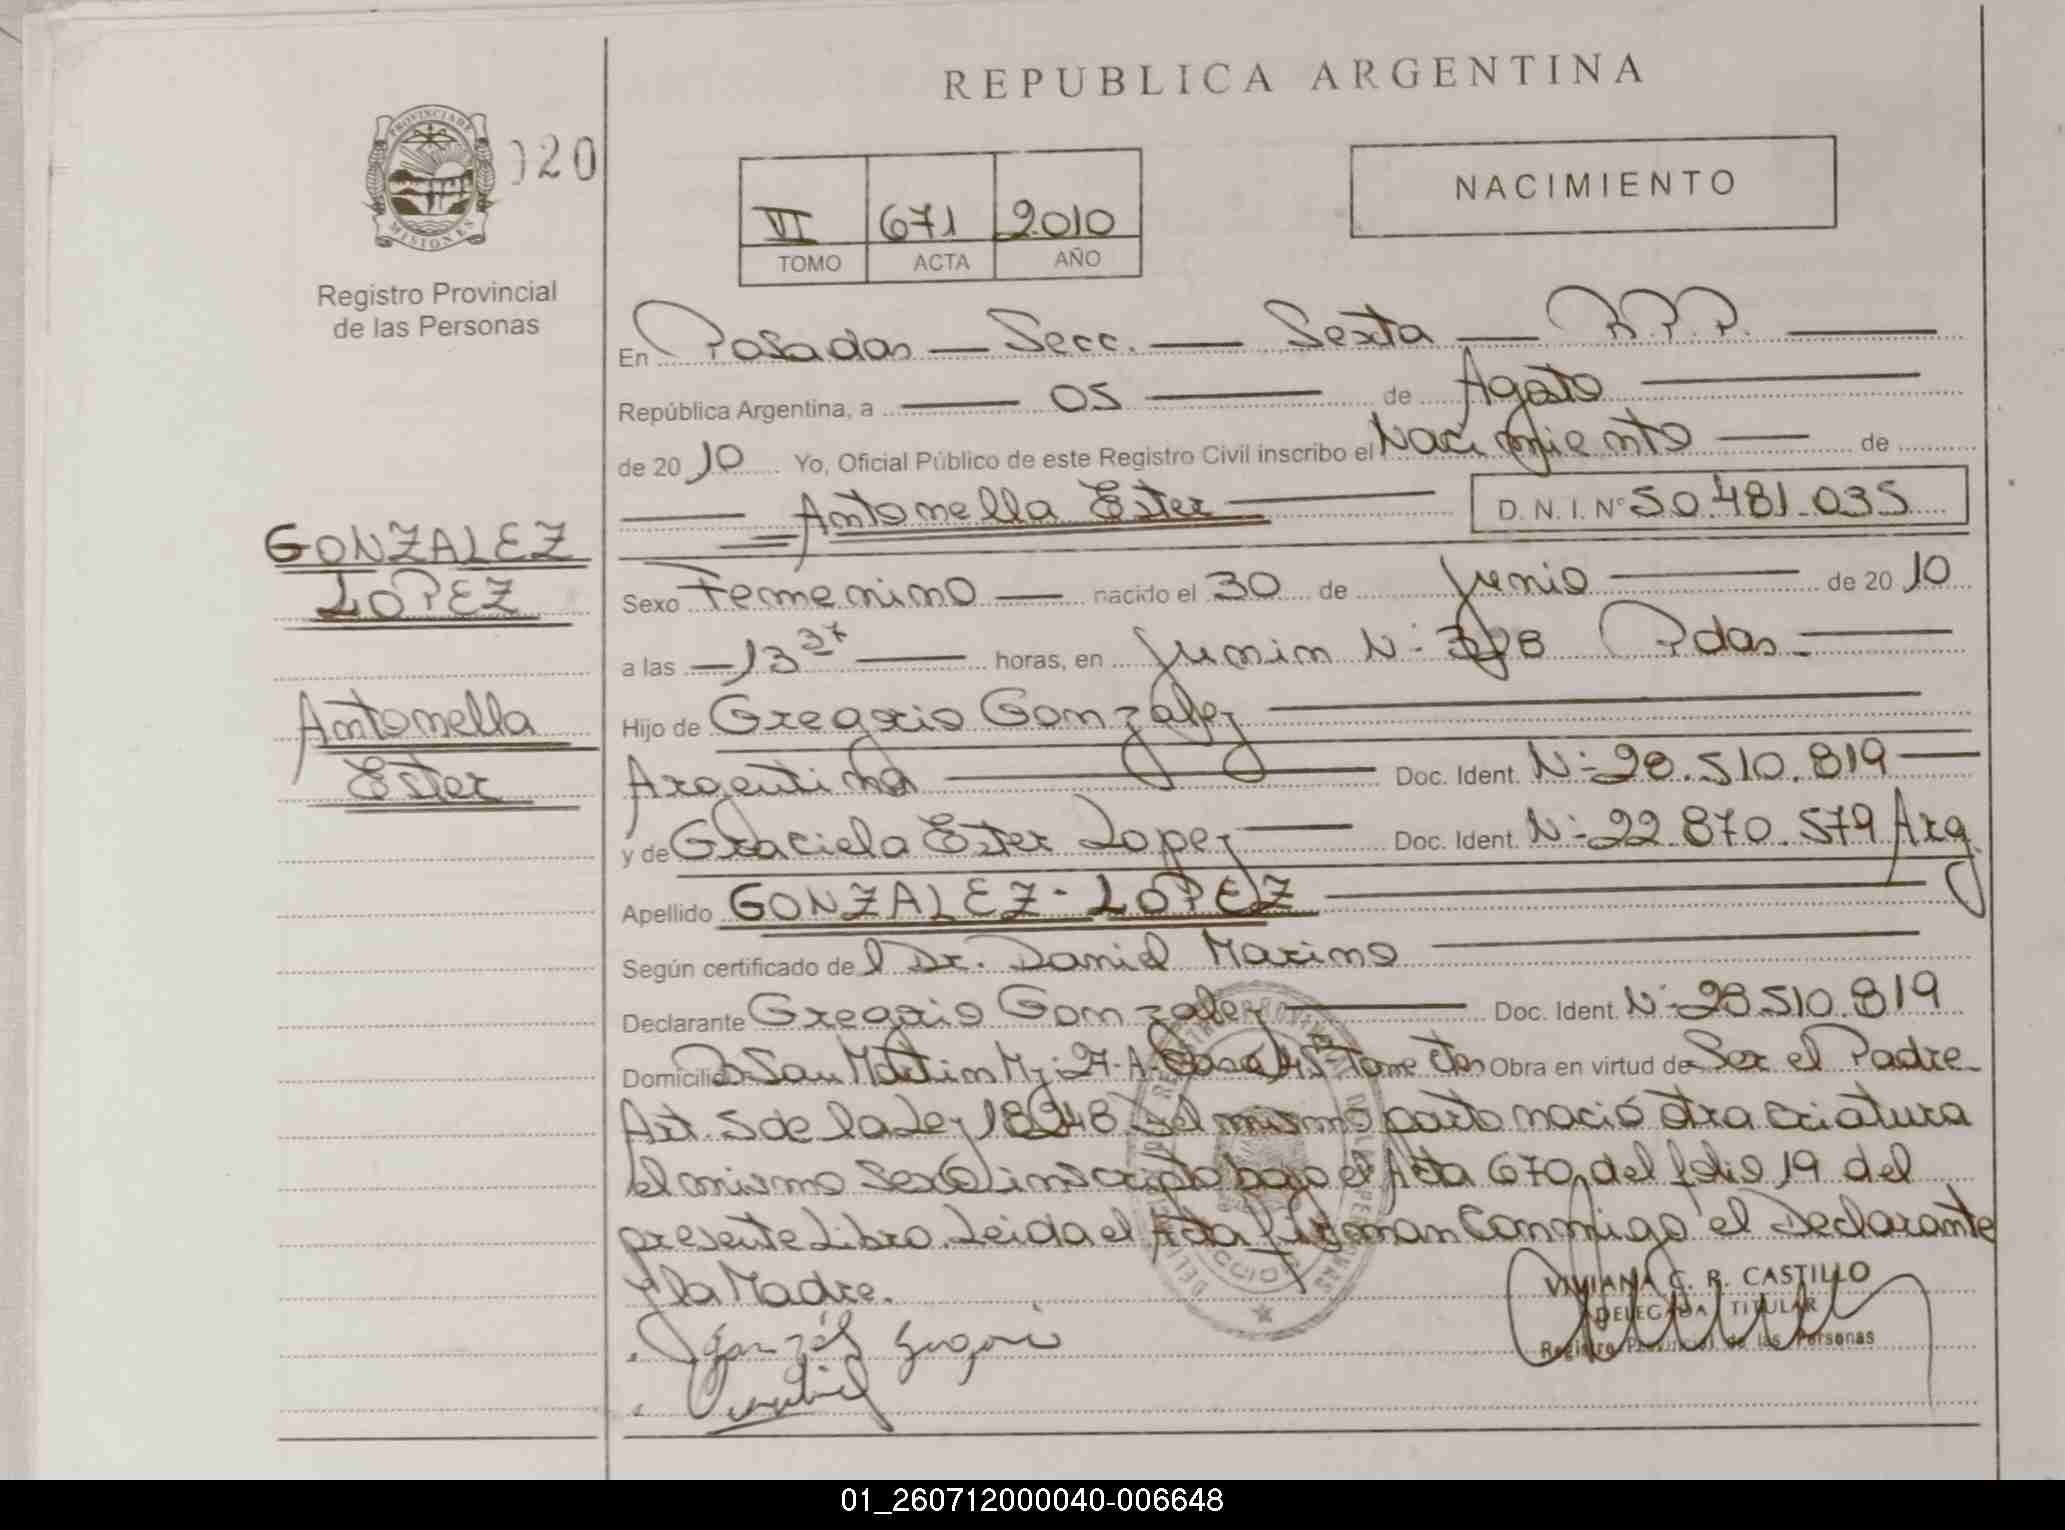 REPUBLICA ARGENTINA
PROVINCIA DE MISIONES
020
NACIMIENTO
VI 671 2010
TOMO ACTA AÑO
Registro Provincial
de las Personas
En Posadas — Secc. — Sexta — R.P.P. —
República Argentina, a — 05 — de Agosto —
de 2010 Yo, Oficial Público de este Registro Civil inscribo el Nacimiento — de
— Antonella Ester — D. N. I. Nº 50.481.035
GONZALEZ
LOPEZ
Sexo Femenino — nacido el 30 de Junio — de 2010
a las — 13 37 — horas, en Junin Nº Pdas. —
Antonella
Ester
Hijo de Gregorio Gonzalez —
Argentina — Doc. Ident. Nº 28.510.819 —
y de Graciela Ester Lopez — Doc. Ident. Nº 22.870.579 Arg.
Apellido GONZALEZ - LOPEZ —
Según certificado del Dr. Daniel Marino —
Declarante Gregorio Gonzalez — Doc. Ident. Nº 28.510.819
Domicilio San Martin Mz: 27-A-Casa Obra en virtud de Ser el Padre
Art. 5 de la Ley 18248 del mismo parto nació otra criatura
el mismo sexo inscripto bajo el Acta 670, del folio 19 del
presente Libro. Leida el Acta firman Conmigo el Declarante
y la Madre.
VIVIANA C. R. CASTILLO
DELEGADA TITULAR
Registro Provincial de las Personas
01_260712000040-006648